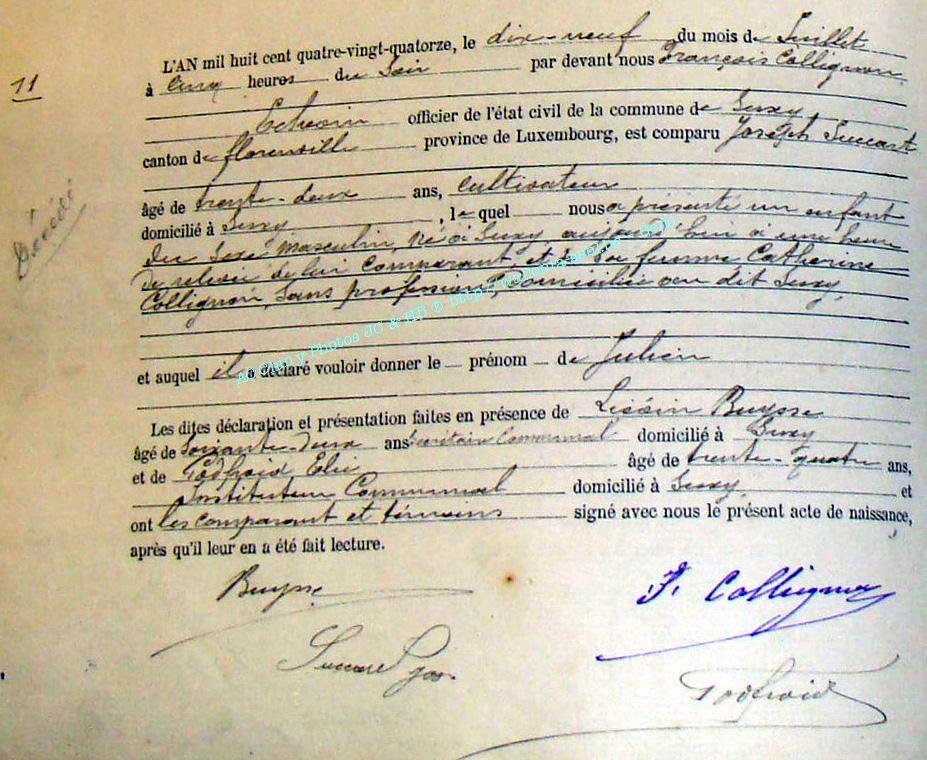 L'AN mil huit cent quatre-vingt-quatorze, le dix-neuf du mois de Juillet
11
à cinq heures du Soir par devant nous François Collignon
Echevin officier de l'état civil de la commune de Suxy
canton de florenville province de Luxembourg, est comparu Joseph
âgé de trente-deux ans, cultivateur
Décédé
domicilié à Suxy, le quel nous a présenté un enfant
du Sexe masculin, né à Suxy, aujourd'hui à une heure
de relevée de lui comparant et de Sa femme Catherine
Collignon, Sans profession, domiciliée au dit Suxy,
et auquel il a déclaré vouloir donner le prénom de Julien
Les dites déclaration et présentation faites en présence de Buysse
âgé de Soixante-deux ans Secrétaire Communal domicilié à Suxy
et de Godfroid Elie âgé de trente-quatre ans,
Instituteur Communal domicilié à Suxy et
ont les comparant et témoins signé avec nous le présent acte de naissance,
après qu'il leur en a été fait lecture.
Buysse
F. Collignon
Godfroid